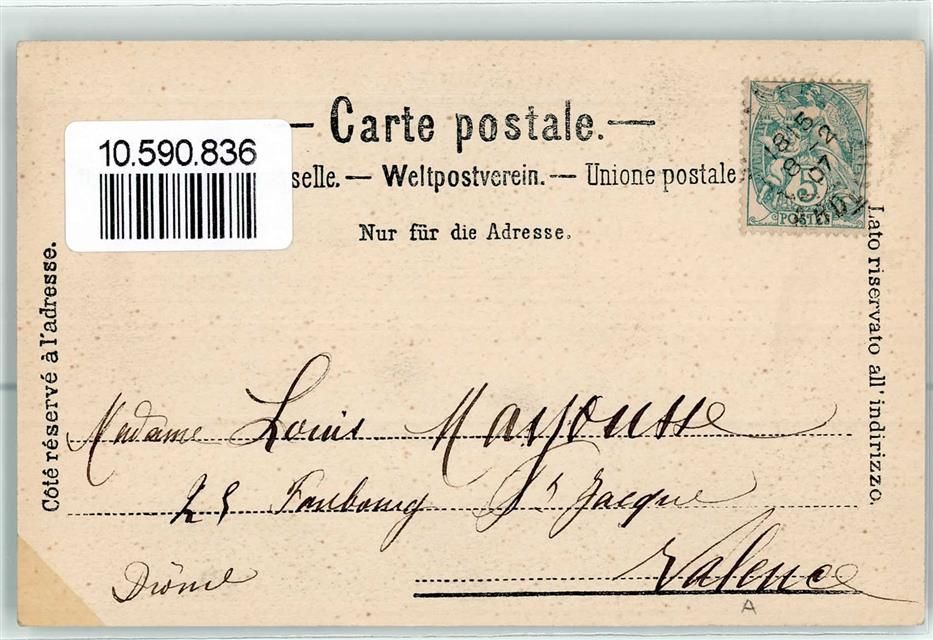 — Carte postale. —
10.590.836
selle. — Weltpostverein. — Unione postale
Nur für die Adresse.
Côté réservé à l'adresse.
Lato riservato all' indirizzo.
5
POSTES
18 15
8 - 2
07
Madame Louis Mayousse
25 Faubourg St Jacque
Valence
Drôme
A